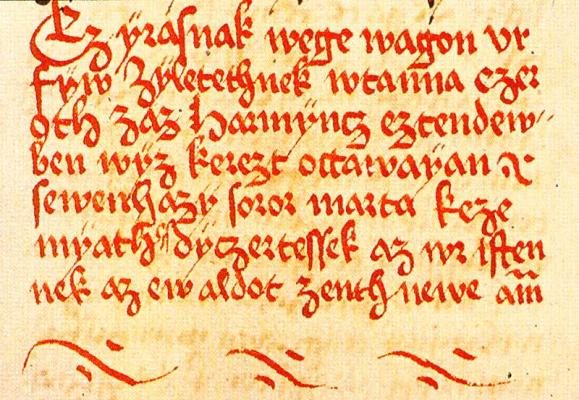 Ez yrasnak wege wagon vr
fyw zyletethnek wtanna ezer
oth zaz harmyncz eztendew-
ben wyz kerezt octawayan
sewenhazy soror marta keze
myath dyczertessek az wr isten
nek az ew aldot zenth newe am̅